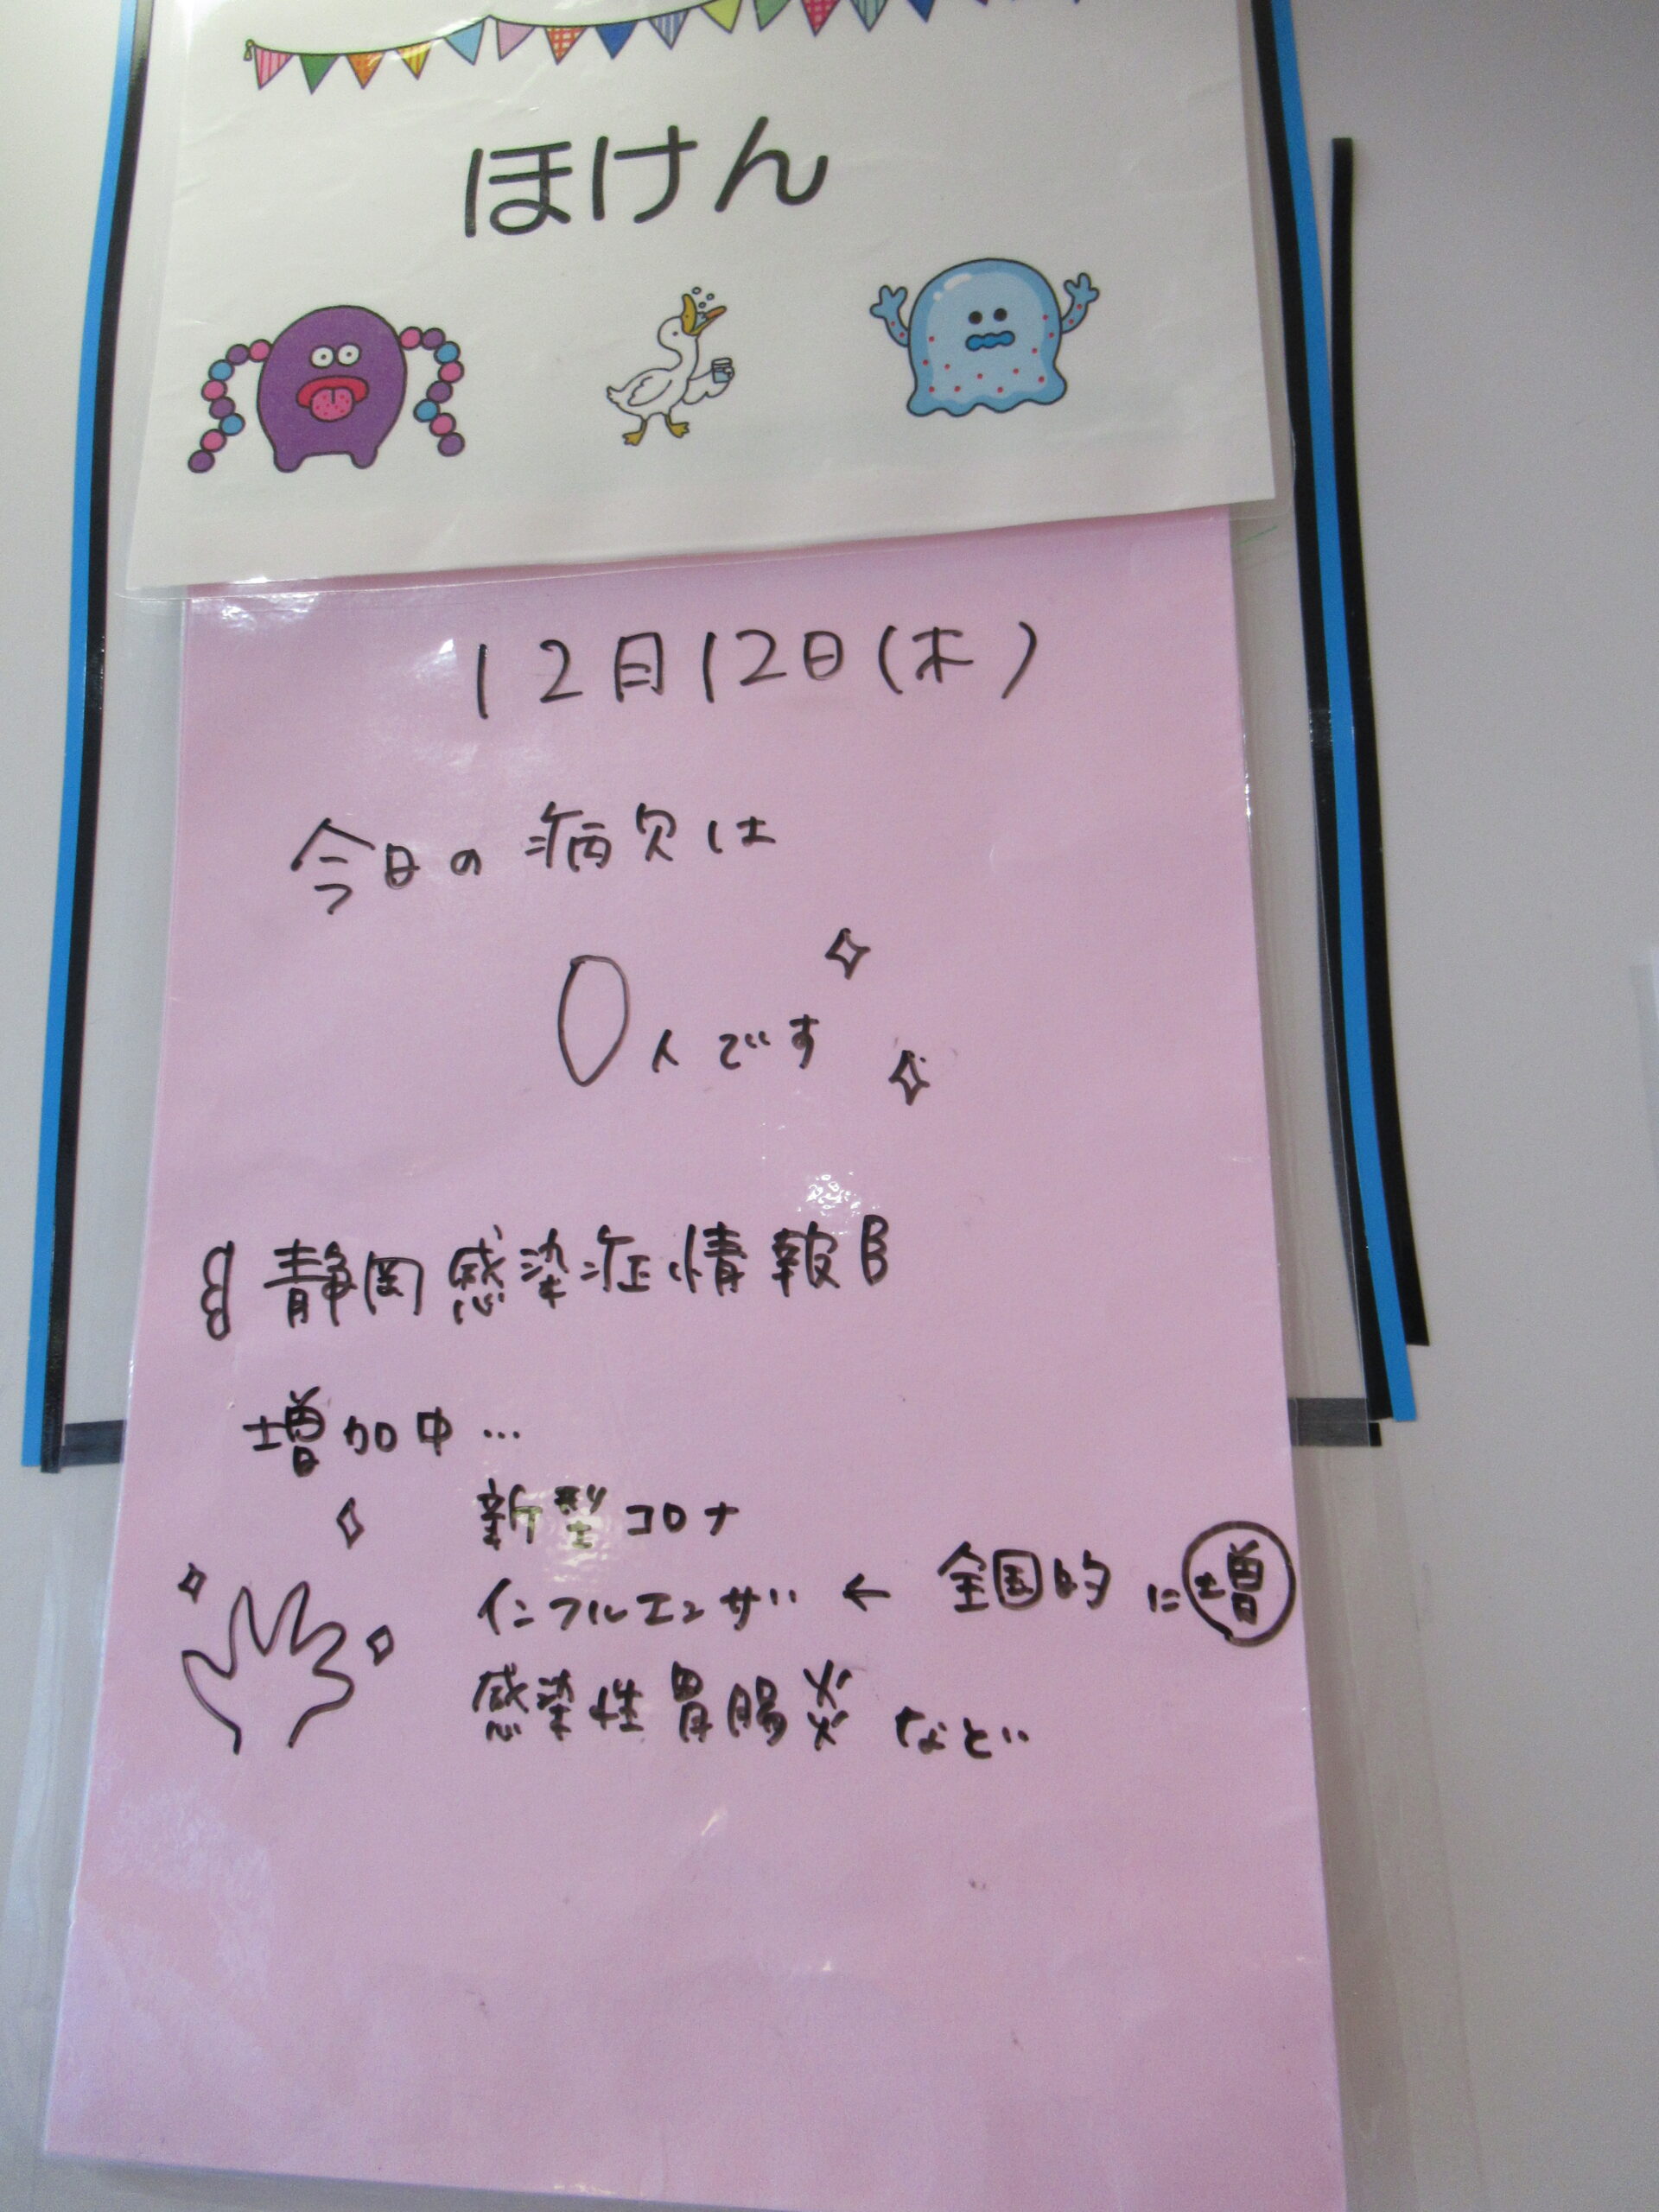 ほけん
12月12日(木)
今日の病欠は
0人です
静岡感染症情報
増加中…
新型コロナ
インフルエンザ ← 全国的に増
感染性胃腸炎 など